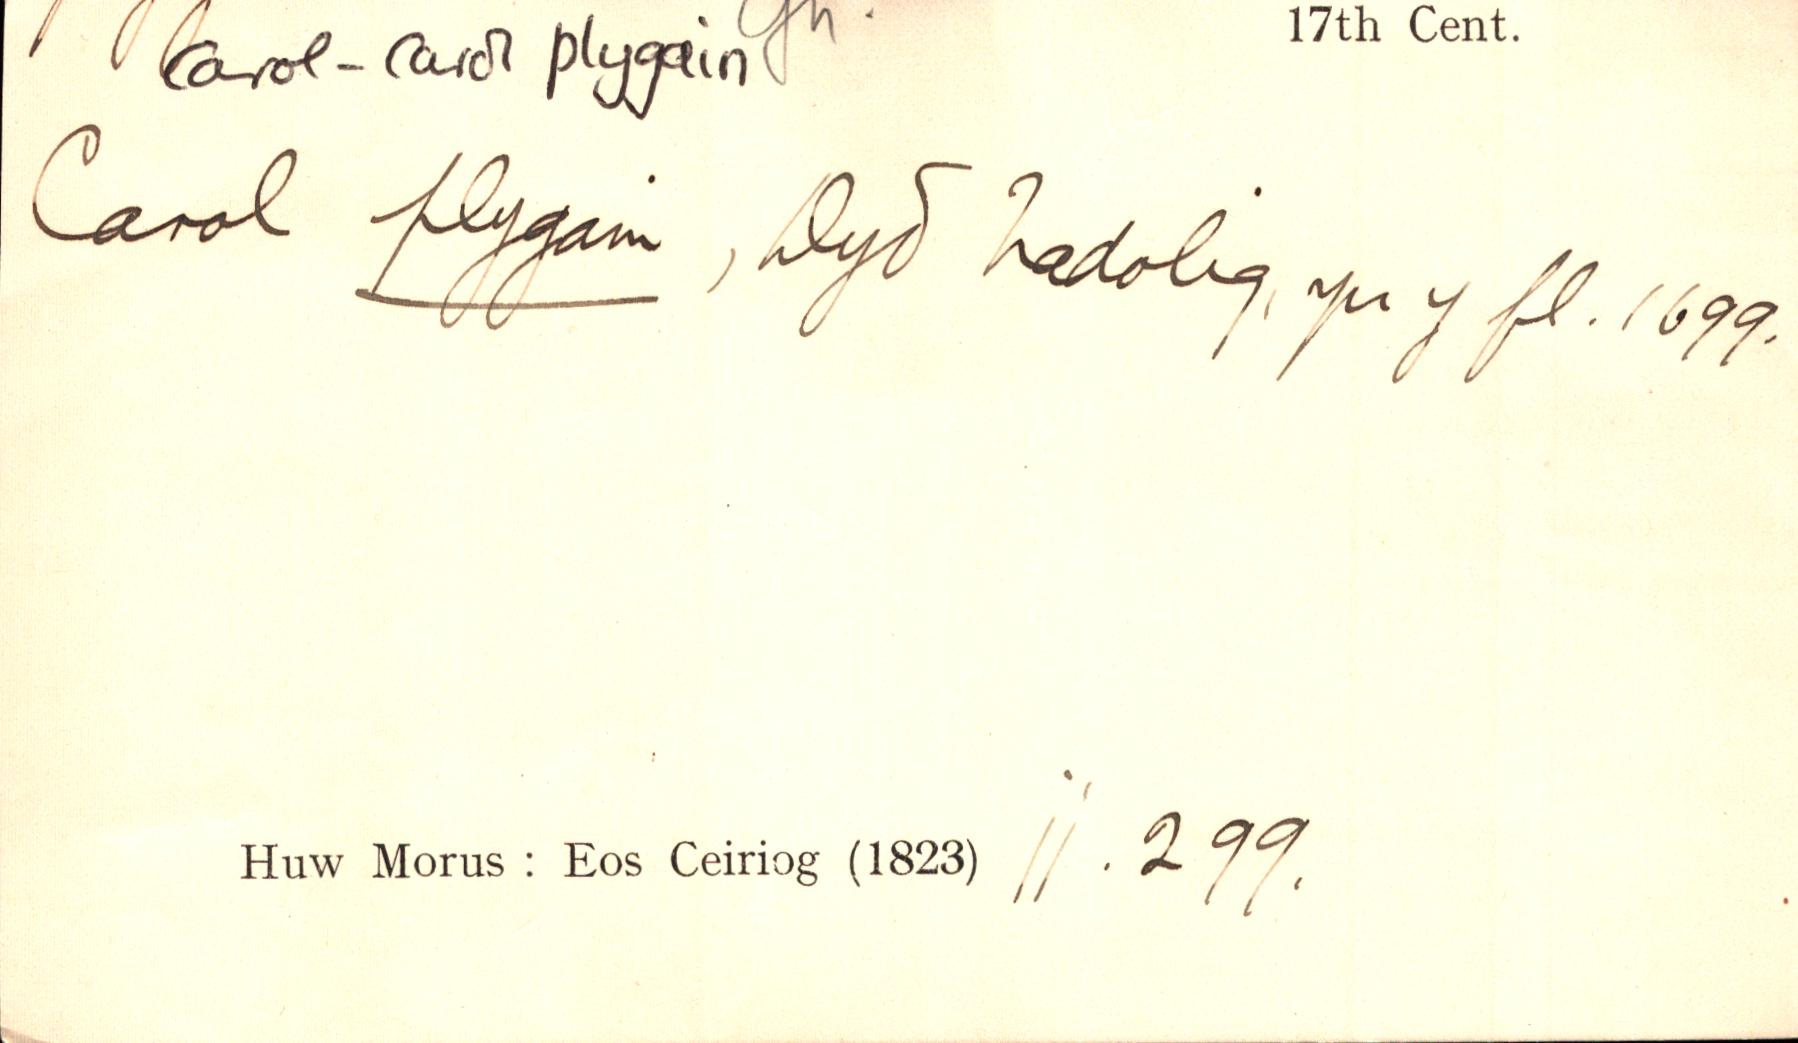 17th Cent.
carol-carol plygain
Carol plygain, Dyð Nadolig, yn y fl. 1699.
Huw Morus : Eos Ceiriog (1823) ij. 299.